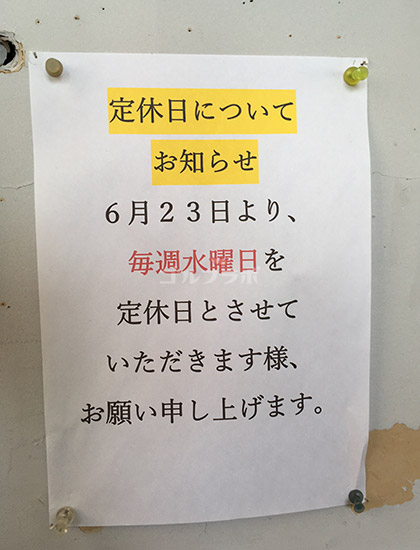 定休日について
お知らせ
６月２３日より、
毎週水曜日を
ゴルフラボ
定休日とさせて
いただきます様、
お願い申し上げます。